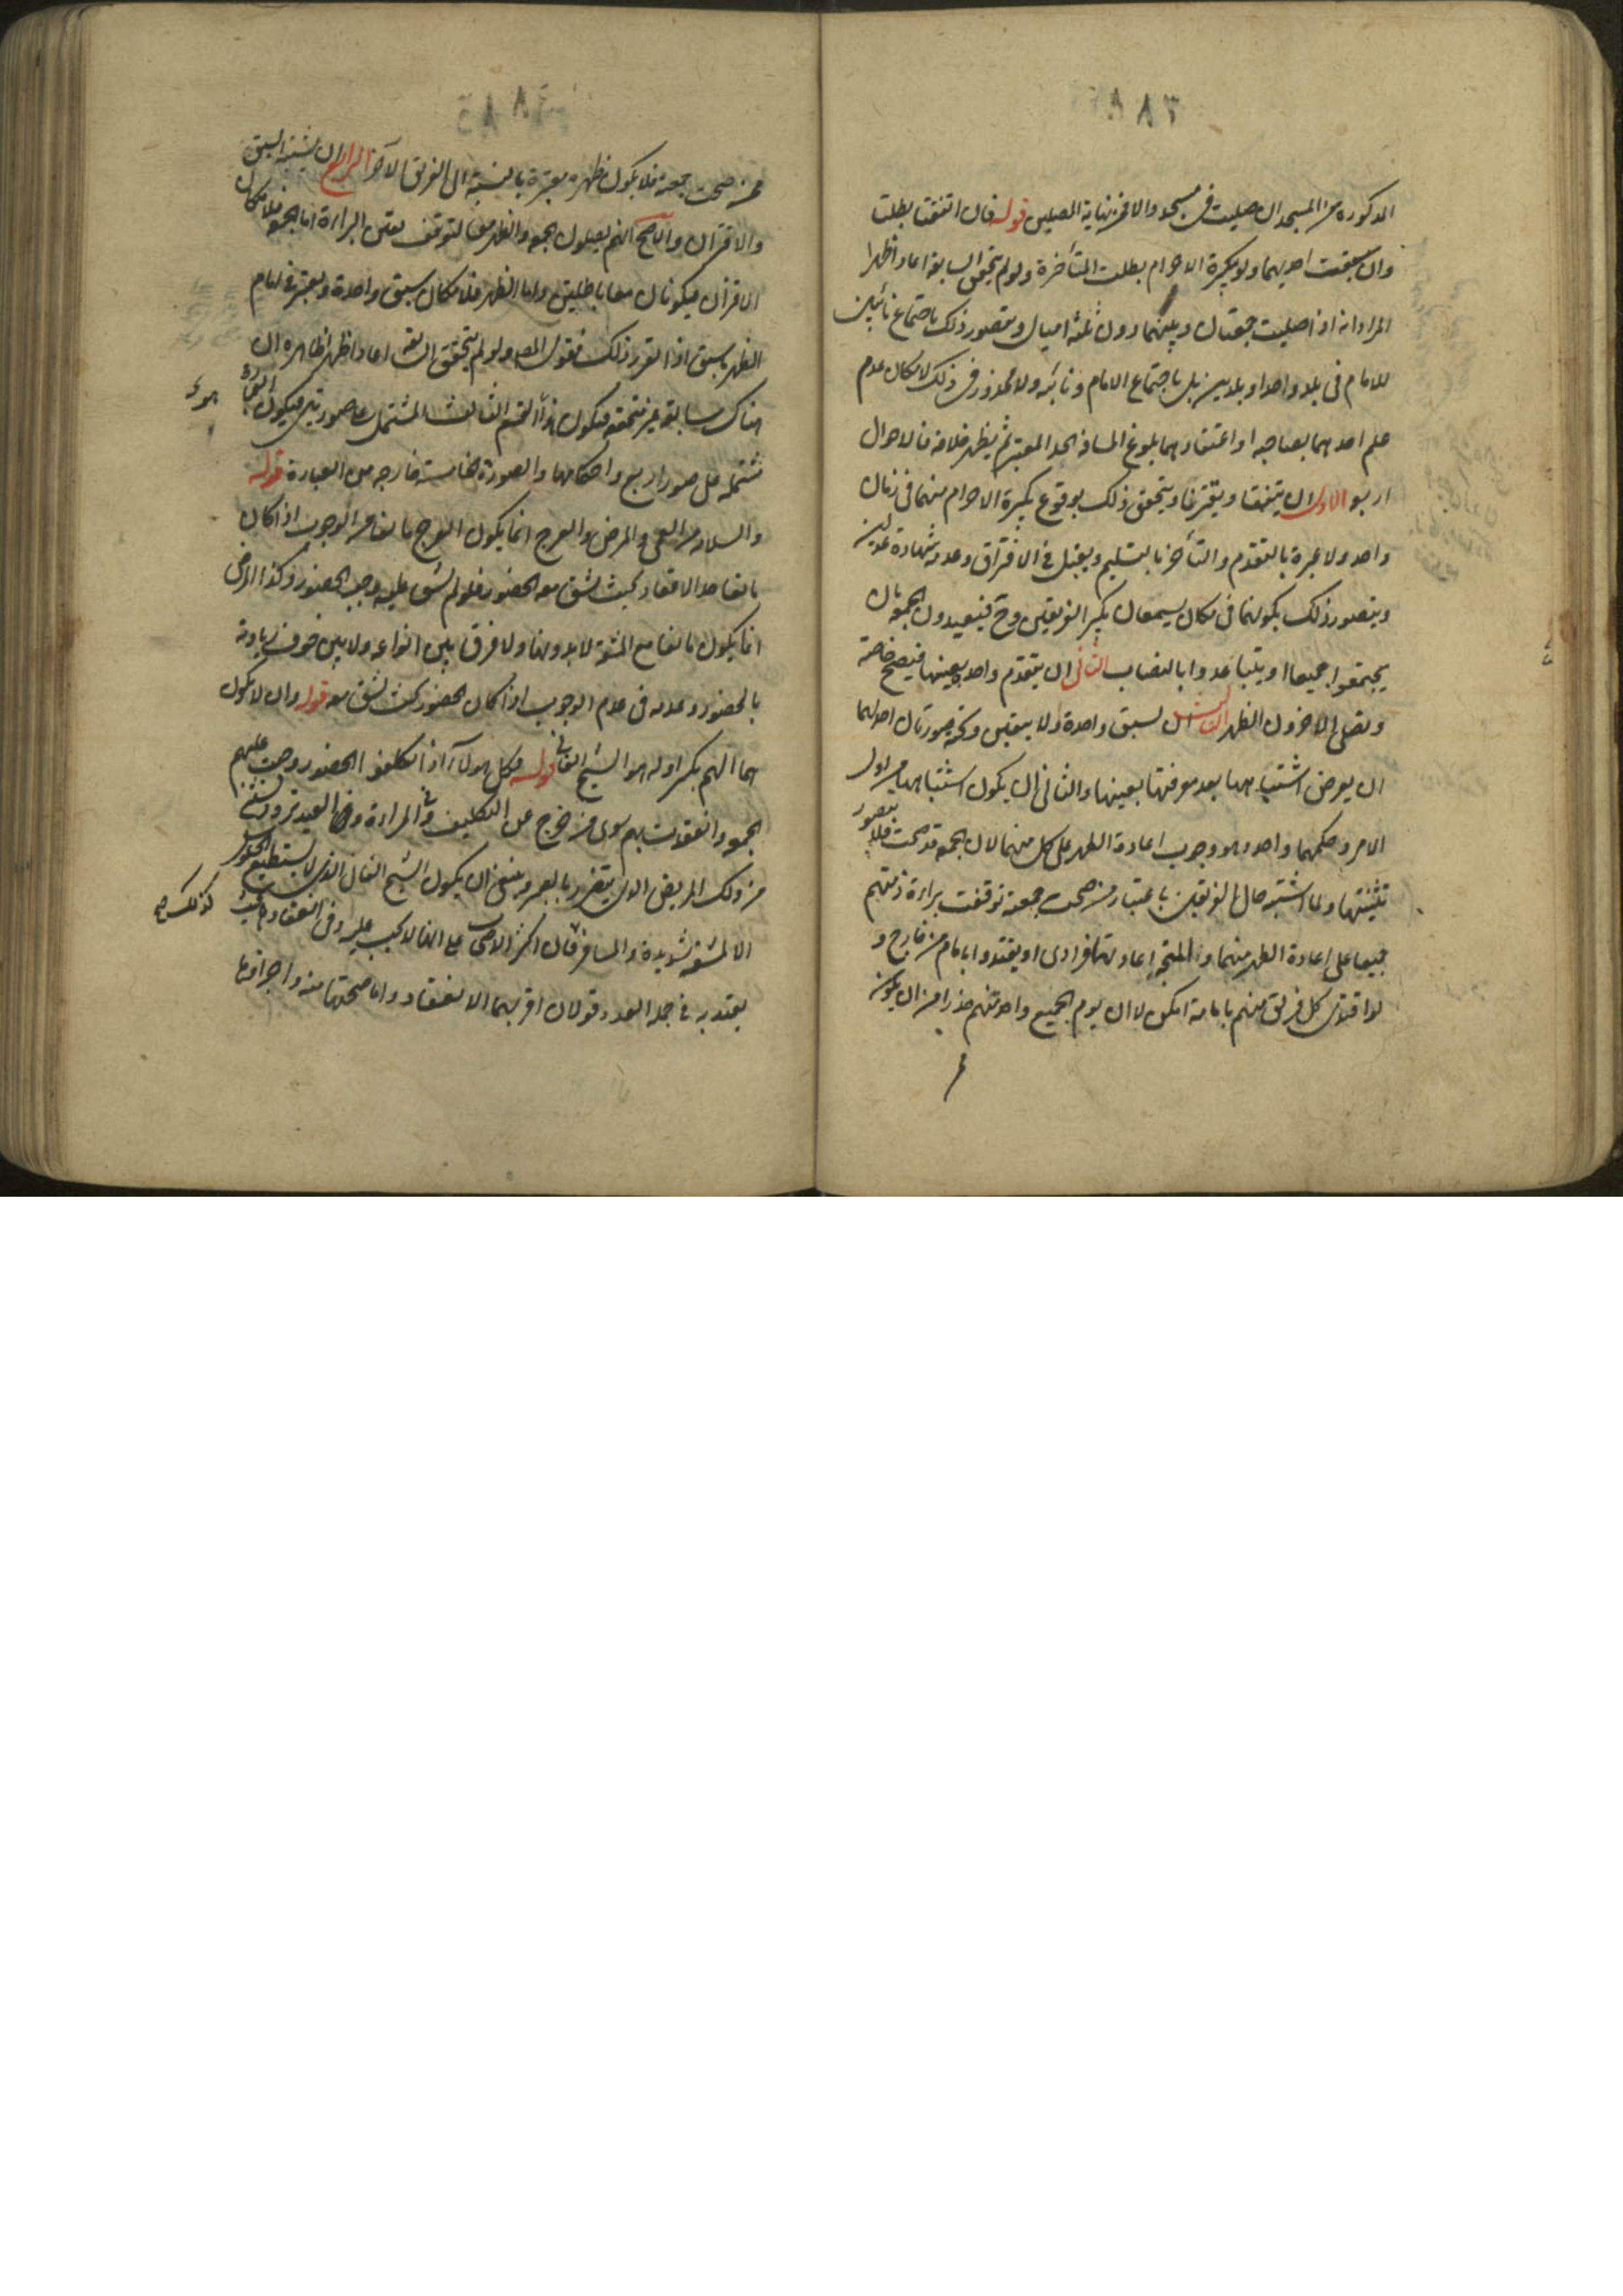 المذكورة من المسجد ان صليت في مسجد والا فمن نهاية المصلين قوله فان اتفقتا بطلتا
وان سبقت احديهما ولو بتكبيرة الاحرام بطلت المتأخرة ولو لم يتحقق السابقة اعادا ظهرا
المراد انه اذا صليت جمعتان وبينهما دون ثلثة اميال ويتصور ذلك باجتماع نائبين
للامام في بلد واحد او بلدين بل باجتماع الامام ونائبه ولا محذور في ذلك لامكان عدم
علم احدهما بصاحبه او اعتقادهما بلوغ المسافة الحد المعتبر ثم يظهر خلافه فالاحوال
اربع الاول ان يتفقا ويقترنا ويتحقق ذلك بوقوع تكبيرة الاحرام منهما في زمان
واحد ولا عبرة بالتقدم والتأخر بالتسليم ويقبل في الاقتران وعدمه شهادة عدلين
ويتصور ذلك بكونهما في مكان يسمعان تكبير الفريقين وح فيعيدون الجمعة بان
يجتمعوا جميعا او يتباعدوا بالنصاب الثاني ان يتقدم واحدة بعينها فيصح خاصة
ويصلي الاخرون الظهر الثالث ان يسبق واحدة ولا يتعين وتحته صورتان احدهما
ان يعرض اشتباهها بعد معرفتها بعينها والثاني ان يكون اشتباهها من اول
الامر وحكمهما واحد وهو وجوب اعادة الظهر على كل منهما لان الجمعة قد صحت فلا يتصور
تثنيتها ولما اشتبه حال الفريقين باعتبار من صحت جمعته توقفت براءة ذمتهم
جميعا على اعادة الظهر منهما والمتجه اعادتها فرادى او يقتدوا بامام من خارج و
لو اقتدى كل فريق منهم بامامه امكن لا ان يؤم الجميع واحد منهم حذرا من ان يكون
من صحت جمعته فلا يكون ظهره معتبرة بالنسبة الى الفريق الآخر الرابع ان يشتبه السبق
والاقتران والاصح انهم يصلون الجمعة والظهر معا لتوقف يقين البراءة اما الجمعة فلامكان
الاقتران فيكونان معا باطلتين واما الظهر فلامكان سبق واحدة ويعتبر في امام
الظهر ما سبق اذا تقرر ذلك فقول المصـ ولو لم يتحقق السابقة اعادا ظهرا ظاهره ان
هناك سابقة غير متحققة فيكون هذا القسم الثالث المشتمل على صورتين فيكون العبارة
مشتملة على صور اربع واحكامها والصورة الخامسة خارجة من العبارة قوله
والسلامة من العمى والمرض والعرج انما يكون العرج مانعا من الوجوب اذا كان
بالغا حد الاقعاد بحيث يشق معه الحضور فلو لم يشق عليه وجب الحضور وكذا المرض
انما يكون مانعا مع المشقة لا بدونها ولا فرق بين انواعه ولا بين خوف زيادته
بالحضور وعدمه في عدم الوجوب اذا كان الحضور بحيث يشق معه قوله وان لا يكون
هما الهم بكسر اوله هو الشيخ الفاني قوله وكل هولاء اذا تكلفوا الحضور وجبت عليهم
الجمعة وانعقدت بهم سوى من خرج عن التكليف والمراءة وفي العبد تردد
من ذلك المريض الذي يتضرر بالصبر وينبغي ان يكون الشيخ الفاني الذي لا يستطيع الحضور كذلك صح
الا بمشقة شديدة والمسافر قال اكثر الاصحاب على انها لا يجب عليه وفي انعقادها بحيث
يعتد به في جملة العدد قولان اقربهما الانعقاد واما صحتها منه واجزاؤها